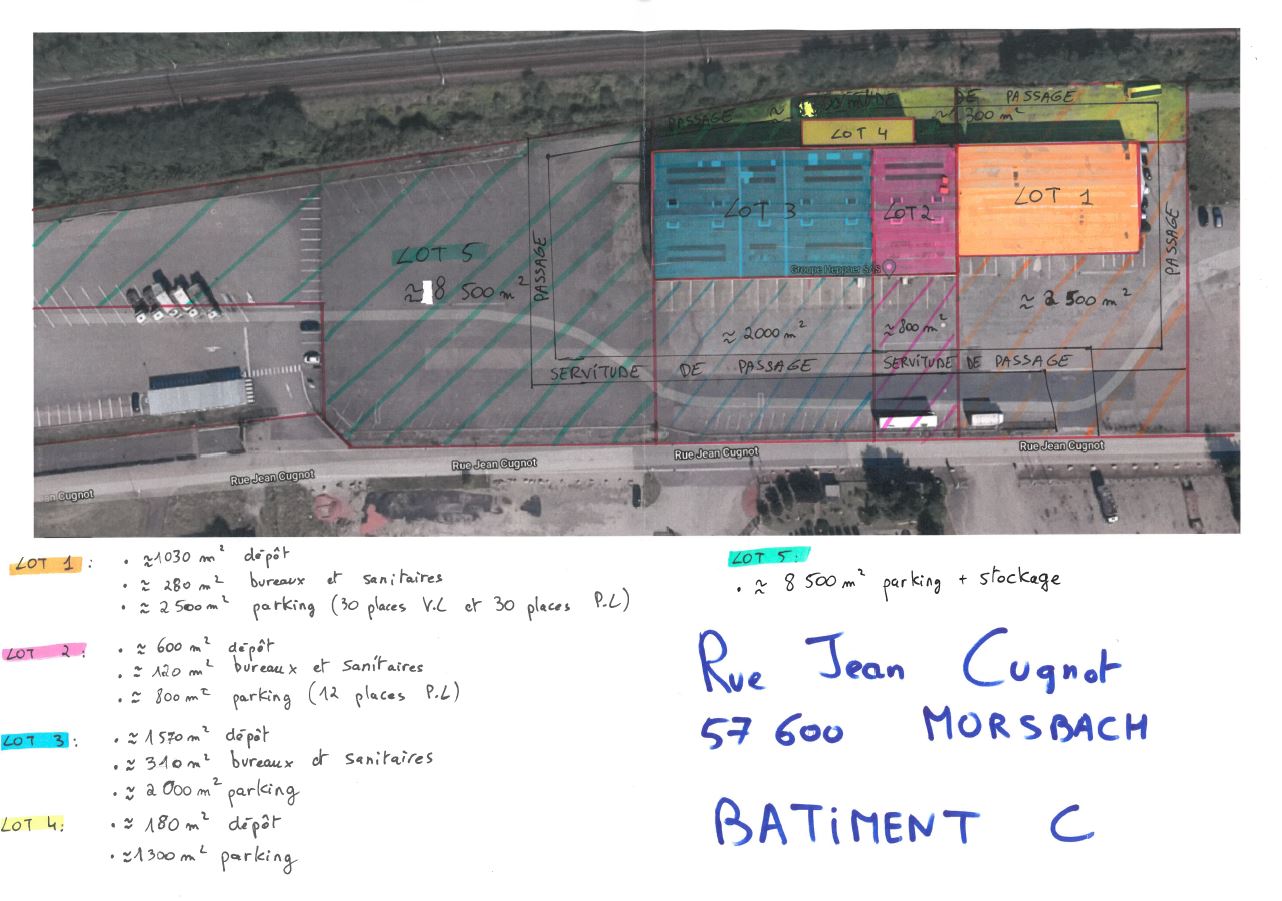 PASSAGE
DE PASSAGE
≈ 1300 m²
LOT 4
LOT 3
LOT 2
LOT 1
Groupe Heppner SAS
LOT 5
≈ 8 500 m²
PASSAGE
PASSAGE
≈ 2000 m²
≈ 800 m²
≈ 2 500 m²
SERVITUDE DE PASSAGE
SERVITUDE DE PASSAGE
Rue Jean Cugnot
Rue Jean Cugnot
Rue Jean Cugnot
Rue Jean Cugnot
an Cugnot
LOT 1 :
• ≈ 1030 m² dépôt
• ≈ 280 m² bureaux et sanitaires
• ≈ 2 500 m² parking (30 places V.L et 30 places P.L)
LOT 2 :
• ≈ 600 m² dépôt
• ≈ 120 m² bureaux et sanitaires
• ≈ 800 m² parking (12 places P.L)
LOT 3 :
• ≈ 1570 m² dépôt
• ≈ 310 m² bureaux et sanitaires
• ≈ 2 000 m² parking
LOT 4 :
• ≈ 180 m² dépôt
• ≈ 1300 m² parking
LOT 5 :
• ≈ 8 500 m² parking + stockage
Rue Jean Cugnot
57 600 MORSBACH
BATiMENT C